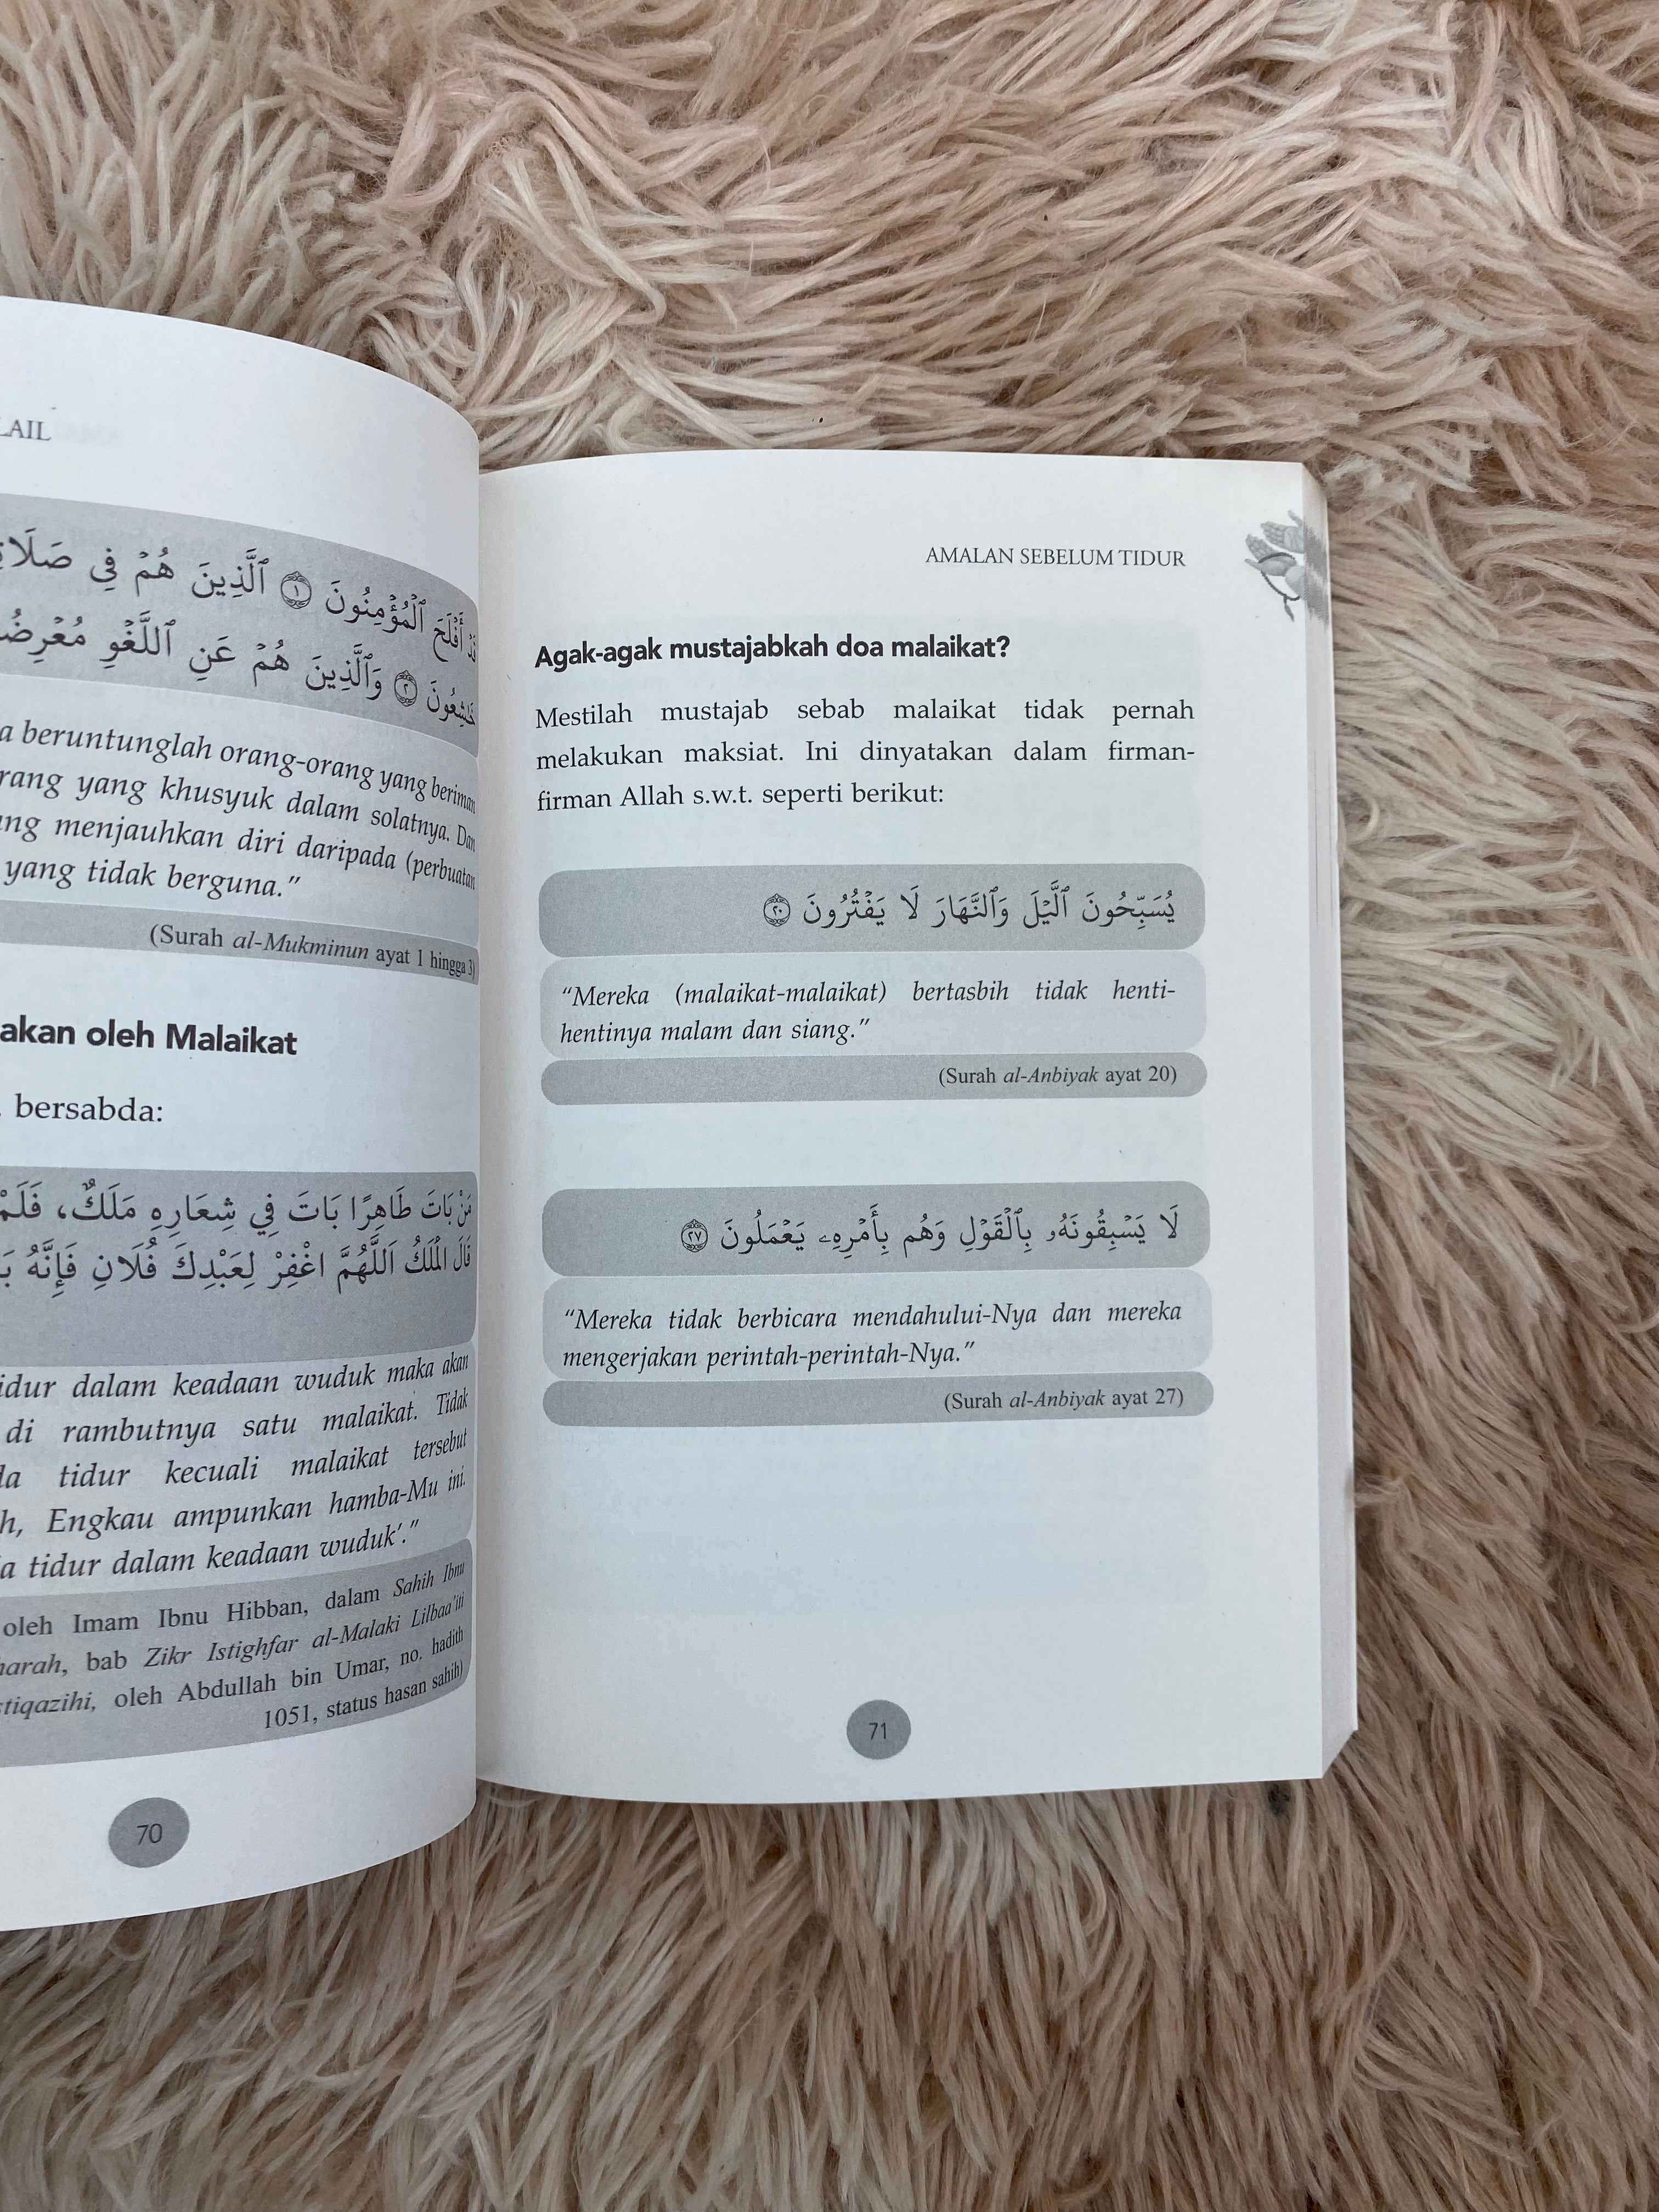 LAIL
قَدْ أَفْلَحَ ٱلْمُؤْمِنُونَ ١ ٱلَّذِينَ هُمْ فِي
خَٰشِعُونَ ٢ وَٱلَّذِينَ هُمْ عَنِ ٱللَّغْوِ
beruntunglah orang-orang yang beriman
yang khusyuk dalam solatnya. Dan
menjauhkan diri daripada (perbuatan
yang tidak berguna.”
(Surah al-Mukminun ayat 1 hingga 3)
akan oleh Malaikat
bersabda:
مَنْ بَاتَ طَاهِرًا بَاتَ فِي شِعَارِهِ مَلَكٌ، فَلَمْ
قَالَ الْمَلَكُ اَللَّهُمَّ اغْفِرْ لِعَبْدِكَ فُلَانِ فَإِنَّهُ
tidur dalam keadaan wuduk maka akan
di rambutnya satu malaikat. Tidak
tidur kecuali malaikat tersebut
Engkau ampunkan hamba-Mu ini.
tidur dalam keadaan wuduk’.”
oleh Imam Ibnu Hibban, dalam Sahih Ibnu
bab Zikr Istighfar al-Malaki Lilbaa’iti
oleh Abdullah bin Umar, no. hadith
1051, status hasan sahih)
70
AMALAN SEBELUM TIDUR
Agak-agak mustajabkah doa malaikat?
Mestilah mustajab sebab malaikat tidak pernah
melakukan maksiat. Ini dinyatakan dalam firman-
firman Allah s.w.t. seperti berikut:
يُسَبِّحُونَ ٱلَّيْلَ وَٱلنَّهَارَ لَا يَفْتُرُونَ ٢٠
“Mereka (malaikat-malaikat) bertasbih tidak henti-
hentinya malam dan siang.”
(Surah al-Anbiyak ayat 20)
لَا يَسْبِقُونَهُۥ بِٱلْقَوْلِ وَهُم بِأَمْرِهِۦ يَعْمَلُونَ ٢٧
“Mereka tidak berbicara mendahului-Nya dan mereka
mengerjakan perintah-perintah-Nya.”
(Surah al-Anbiyak ayat 27)
71